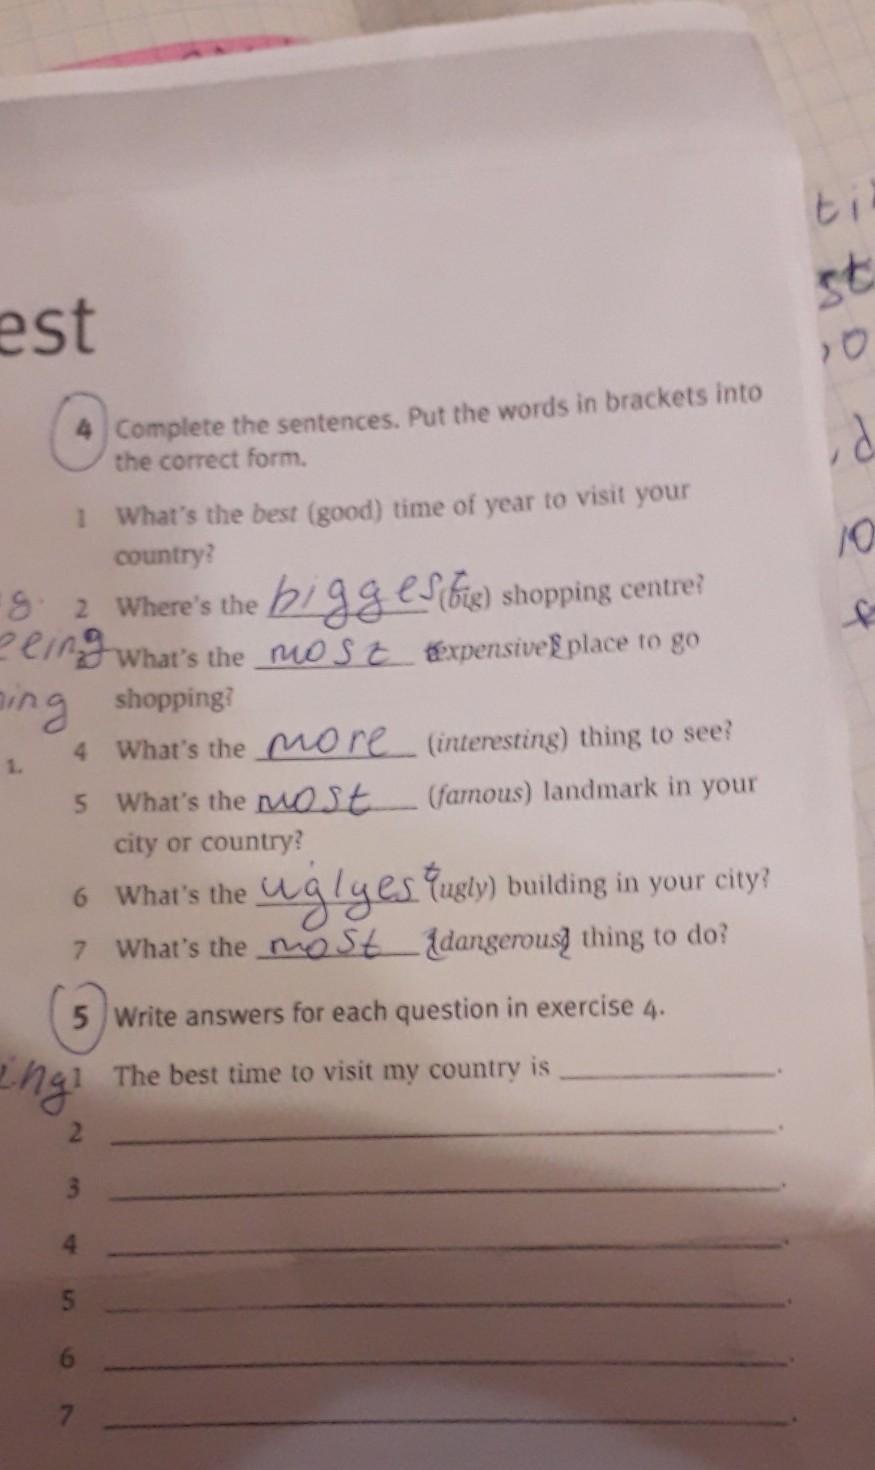 est
4 Complete the sentences. Put the words in brackets into
the correct form.
1 What's the best (good) time of year to visit your
country?
2 Where's the biggest (big) shopping centre?
What's the most expensive place to go
shopping?
4 What's the more (interesting) thing to see?
1.
5 What's the most (famous) landmark in your
city or country?
6 What's the uglyest (ugly) building in your city?
7 What's the most (dangerous) thing to do?
5 Write answers for each question in exercise 4.
1 The best time to visit my country is ____________.
2 ____________.
3 ____________.
4 ____________.
5 ____________.
6 ____________.
7 ____________.
eeing
ing
ing
ti
st
10